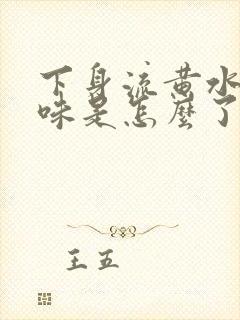 下身流黄水
味是怎麼了
王五